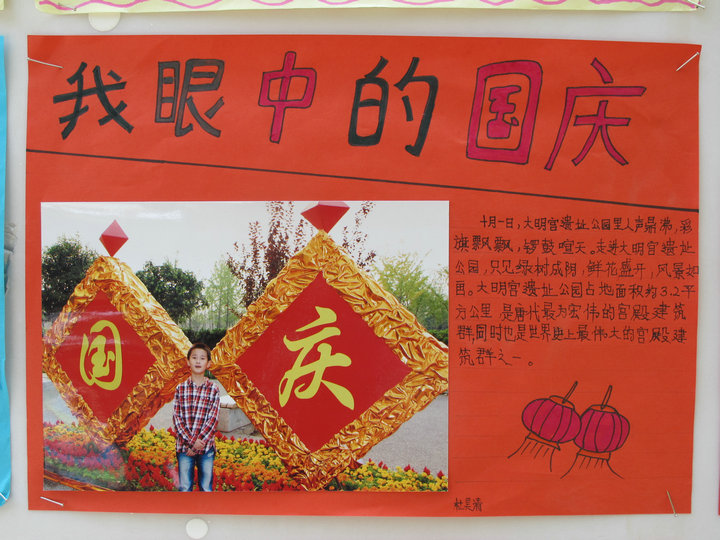 我眼中的国庆
十月一日，大明宫遗址公园里人声鼎沸，彩
旗飘飘，锣鼓喧天。走进大明宫遗址
公园，只见绿树成阴，鲜花盛开，风景如
画。大明宫遗址公园占地面积约3.2平
方公里，是唐代最为宏伟的宫殿建筑
群，同时也是世界史上最伟大的宫殿建
筑群之一。
国
庆